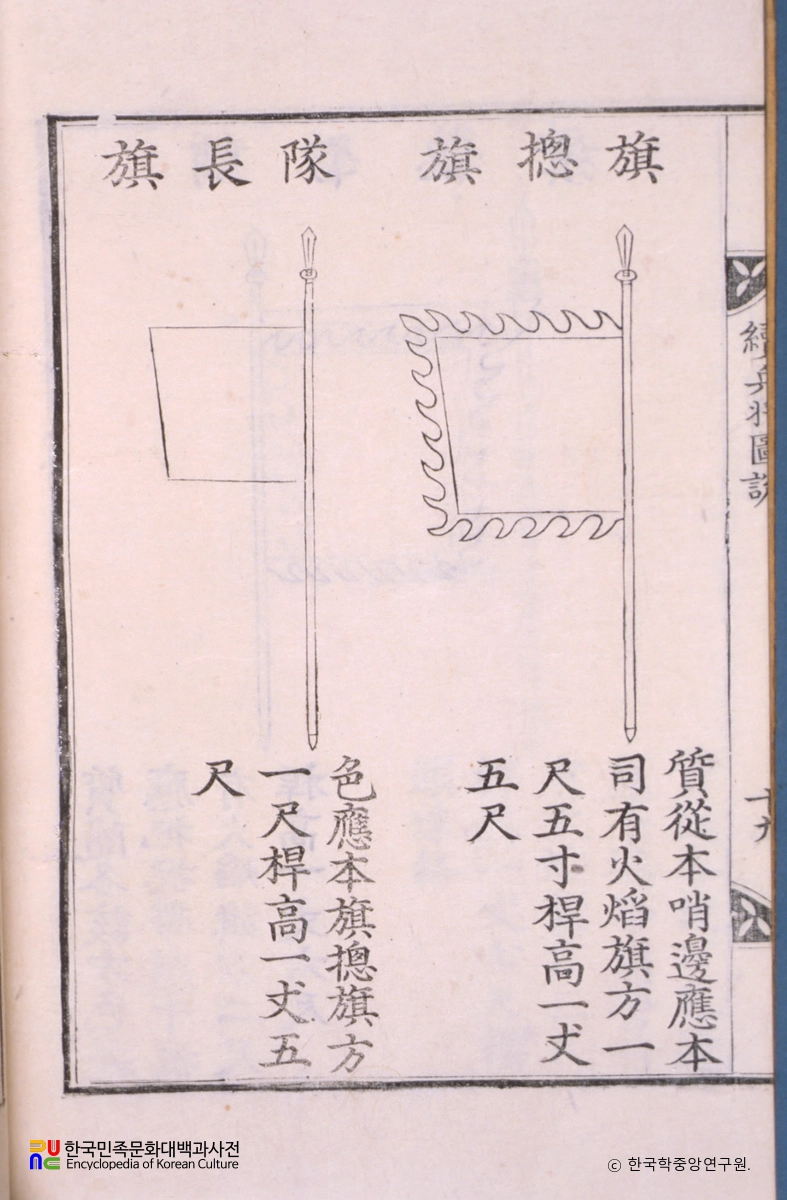 續兵將圖說
十九
旗摠旗
質從本哨邊應本
司有火焰旗方一
尺五寸桿高一丈
五尺
隊長旗
色應本旗摠旗方
一尺桿高一丈五
尺
한국민족문화대백과사전
Encyclopedia of Korean Culture
ⓒ 한국학중앙연구원.